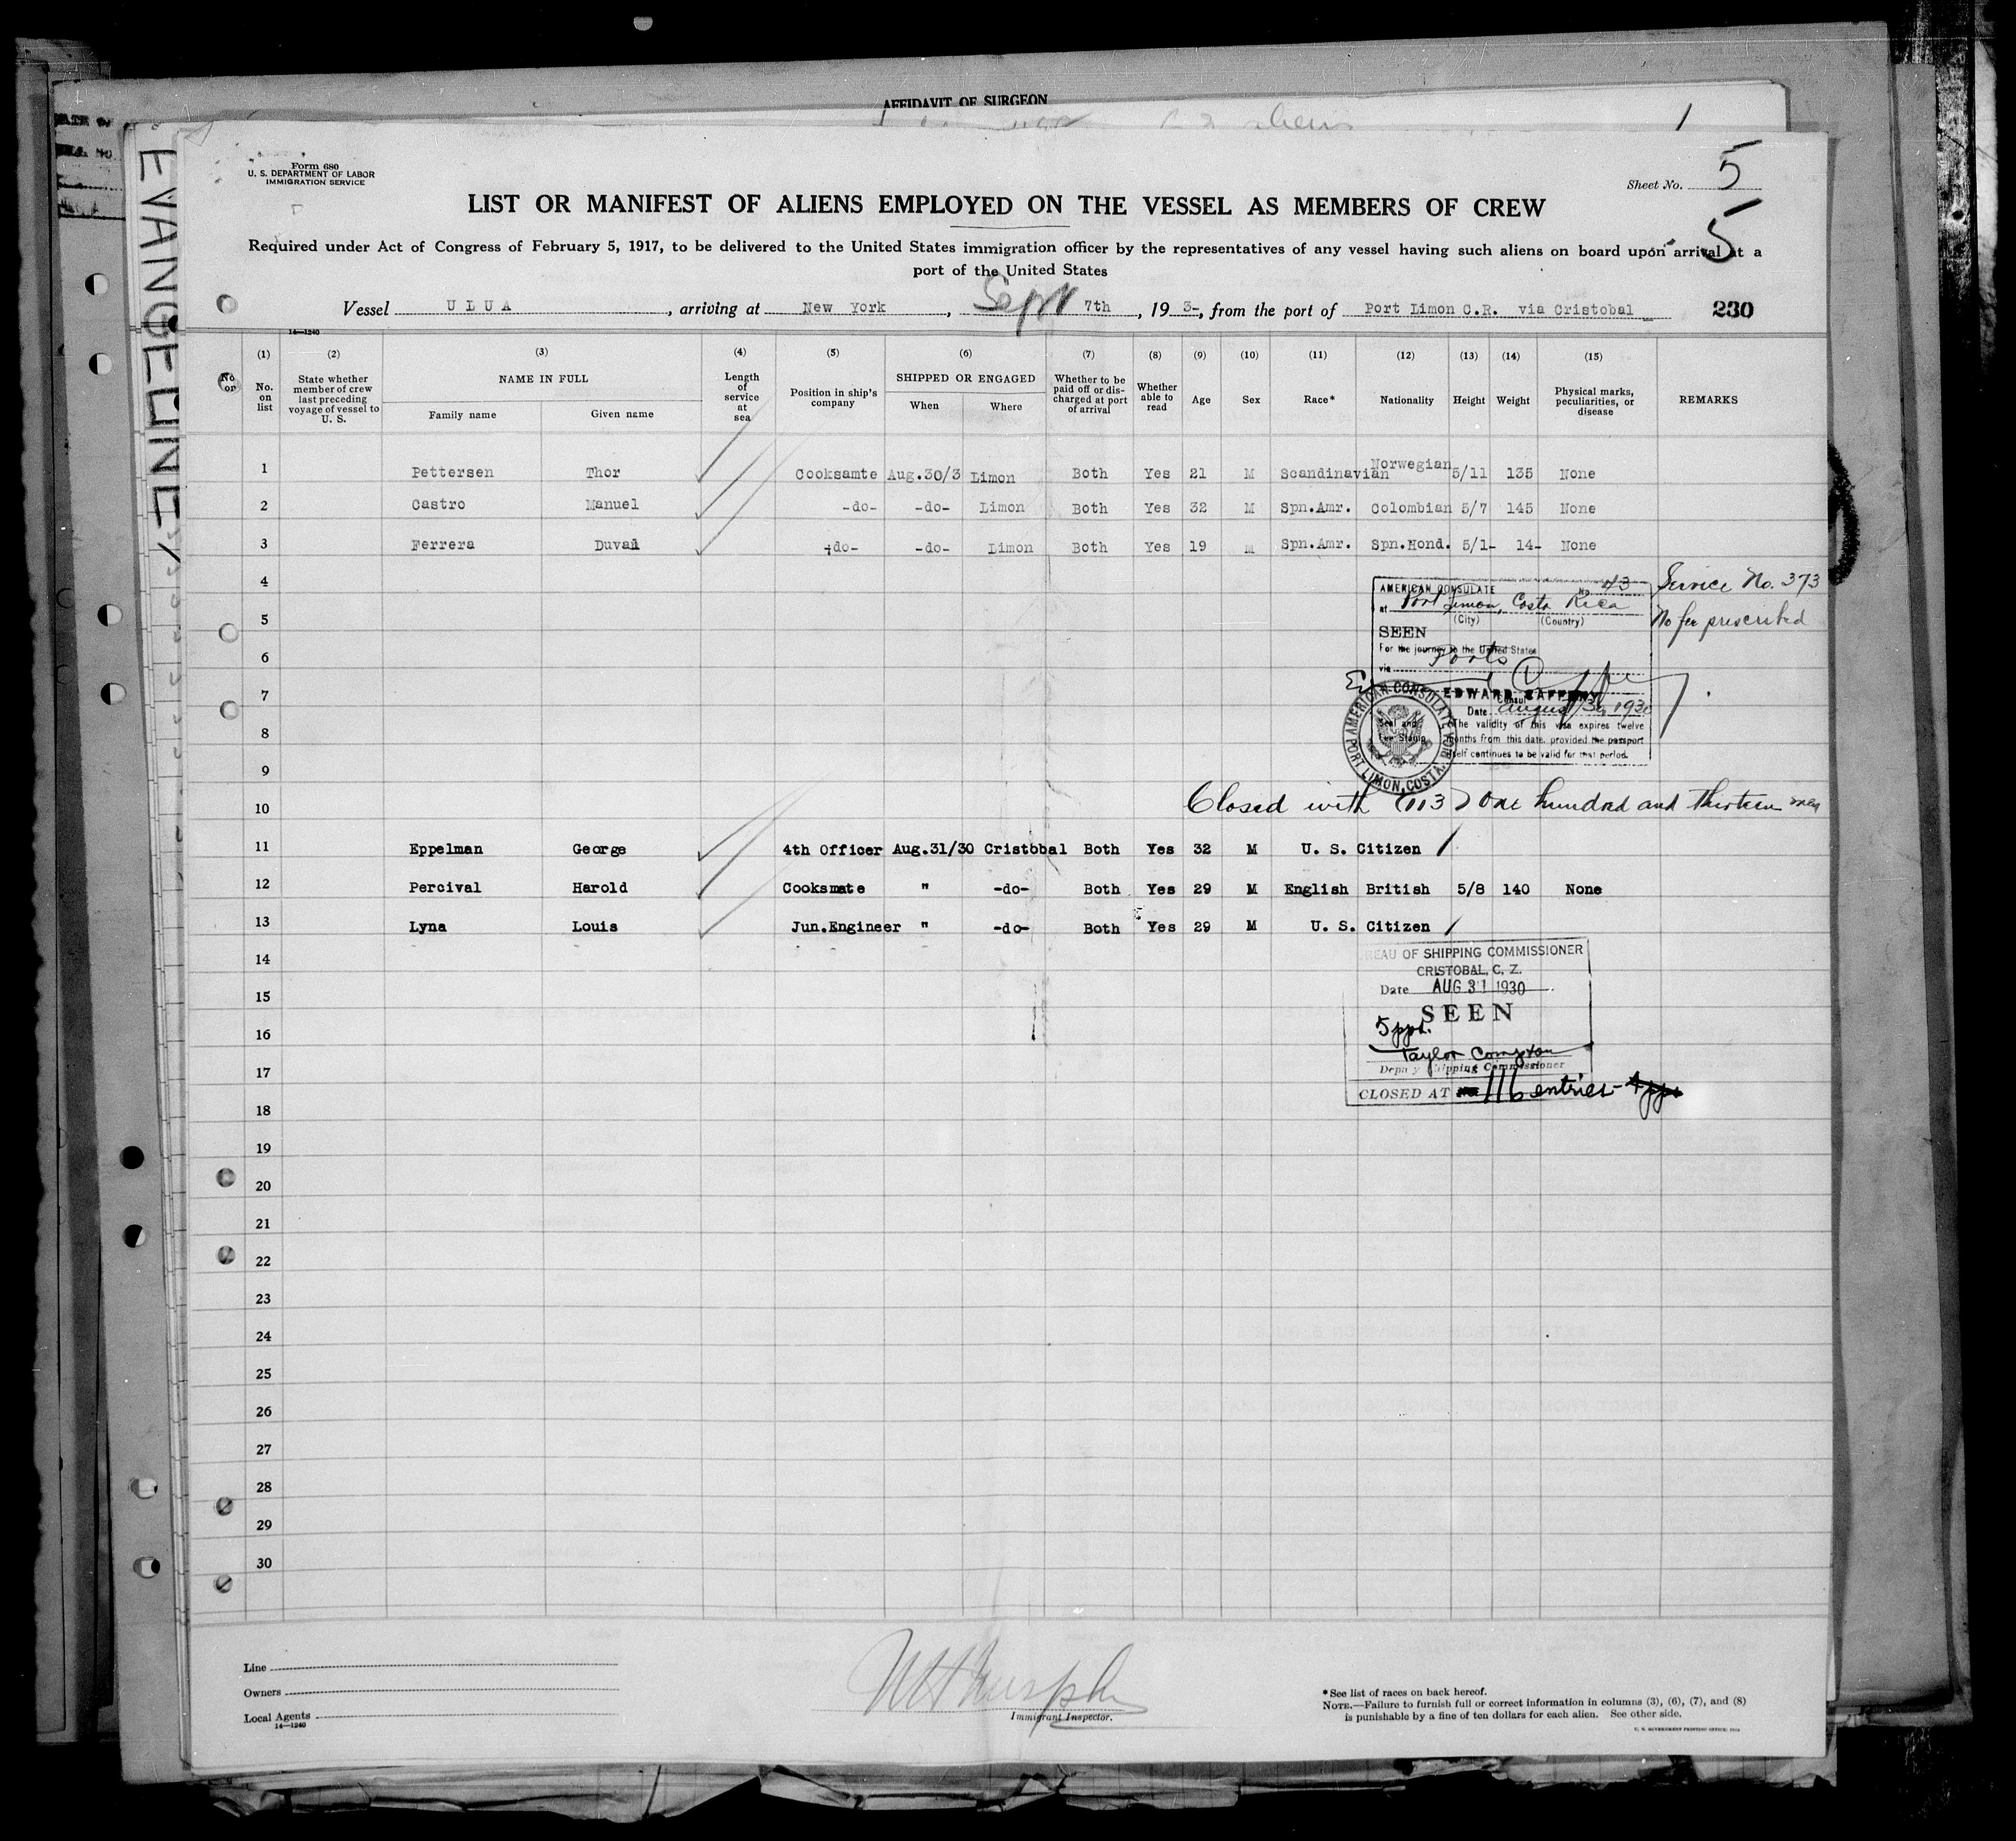 AFFIDAVIT OF SURGEON
EVANGELINE
Form 680
U. S. DEPARTMENT OF LABOR
IMMIGRATION SERVICE
Sheet No. 5
5
LIST OR MANIFEST OF ALIENS EMPLOYED ON THE VESSEL AS MEMBERS OF CREW
Required under Act of Congress of February 5, 1917, to be delivered to the United States immigration officer by the representatives of any vessel having such aliens on board upon arrival at a
port of the United States
Vessel ULUA, arriving at New York, Sept 7th, 193-, from the port of Port Limon C.R. via Cristobal 230
14—1240
(1) (2) (3) (4) (5) (6) (7) (8) (9) (10) (11) (12) (13) (14) (15)
No. on list State whether member of crew last preceding voyage of vessel to U. S. NAME IN FULL Family name Given name Length of service at sea Position in ship's company SHIPPED OR ENGAGED When Where Whether to be paid off or discharged at port of arrival Whether able to read Age Sex Race* Nationality Height Weight Physical marks, peculiarities, or disease REMARKS
1 Pettersen Thor Cooksamte Aug.30/3 Limon Both Yes 21 M Scandinavian Norwegian 5/11 135 None
2 Castro Manuel -do- -do- Limon Both Yes 32 M Spn.Amr. Colombian 5/7 145 None
3 Ferrera Duval -do- -do- Limon Both Yes 19 M Spn.Amr. Spn.Hond. 5/1- 14- None
4
5
6
7
8
9
10
AMERICAN CONSULATE No. 43
at Port Limon, Costa Rica
(City) (Country)
SEEN
For the journey to the United States
via Ports
EDWARD CAFFERY
Consul
Date August 30, 1930
The validity of this visa expires twelve
months from this date, provided the passport
itself continues to be valid for that period.
Seal and
Fee Stamp
AMERICAN CONSULATE PORT LIMON, COSTA RICA
Service No. 373
No fee prescribed
Closed with (113) One hundred and thirteen men
11 Eppelman George 4th Officer Aug.31/30 Cristobal Both Yes 32 M U. S. Citizen
12 Percival Harold Cooksmate " -do- Both Yes 29 M English British 5/8 140 None
13 Lyna Louis Jun.Engineer " -do- Both Yes 29 M U. S. Citizen
14
15
16
17
18
19
20
21
22
23
24
25
26
27
28
29
30
BUREAU OF SHIPPING COMMISSIONER
CRISTOBAL, C. Z.
Date AUG 31 1930
SEEN
5 ppt.
Taylor Compton
Deputy Shipping Commissioner
CLOSED AT 116 entries-
Line
Owners
Local Agents
14—1240
W H Murphy
Immigrant Inspector.
*See list of races on back hereof.
NOTE.—Failure to furnish full or correct information in columns (3), (6), (7), and (8)
is punishable by a fine of ten dollars for each alien. See other side.